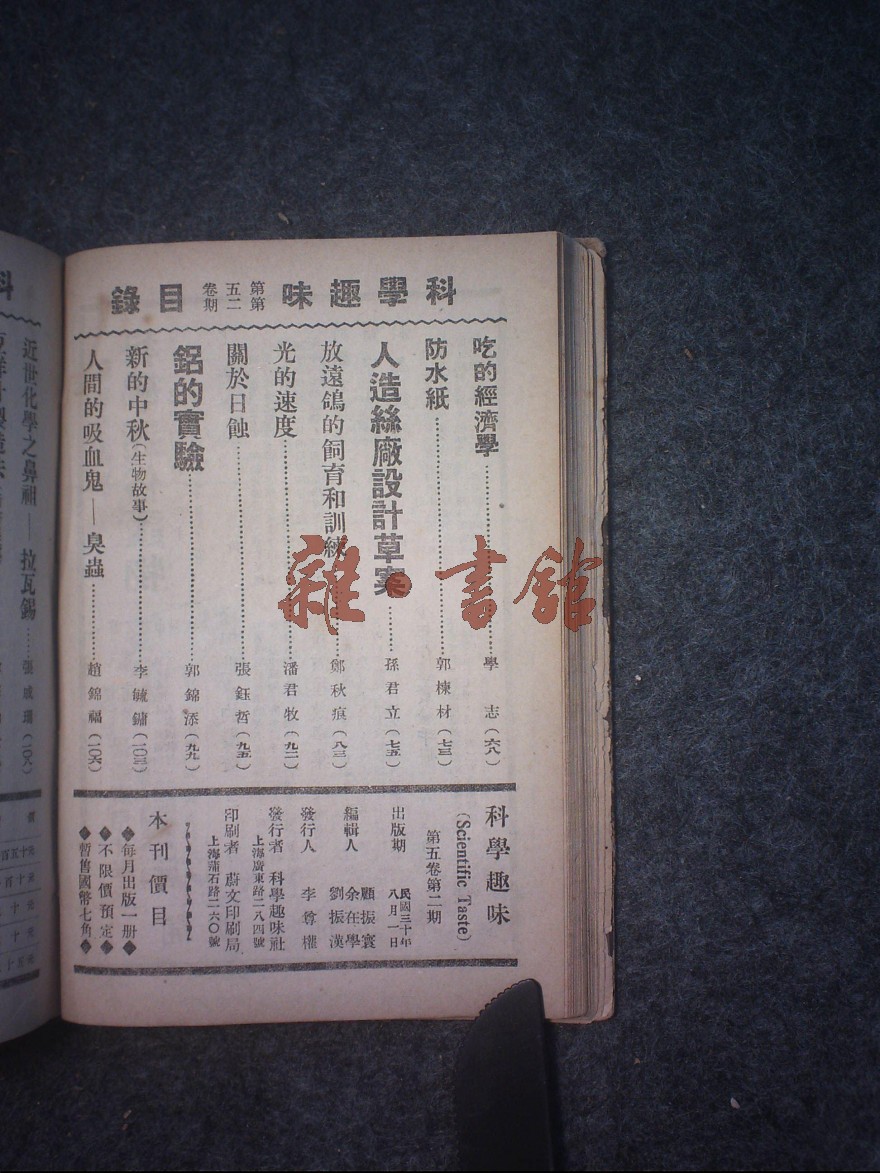 科學趣味
第五卷
第二期
目錄
吃的經濟學………學 志(六八)
防水紙………郭棟材(七三)
人造絲廠設計草案……孫君立(七五)
放遠鴿的飼育和訓練……鄭秋痕(八三)
光的速度………潘君牧(九二)
關於日蝕………張鈺哲(九五)
鋁的實驗………郭錦添(九九)
新的中秋(生物故事)………李毓鏞(一〇三)
人間的吸血鬼——臭蟲………趙錦福(一〇六)
科學趣味
(Scientific Taste)
第五卷第二期
出版期 民國三十年八月一日
編輯人 顧振寰 余在學 劉振漢
發行人 李尊權
發行者 科學趣味社
上海廣東路二八四號
印刷者 蔚文印刷局
上海蒲石路二六〇號
本刊價目
◆每月出版一册◆
◆不限價預定◆
◆暫售國幣七角◆
雜·書館
科
近世化學之鼻祖——拉瓦錫……張咸
價